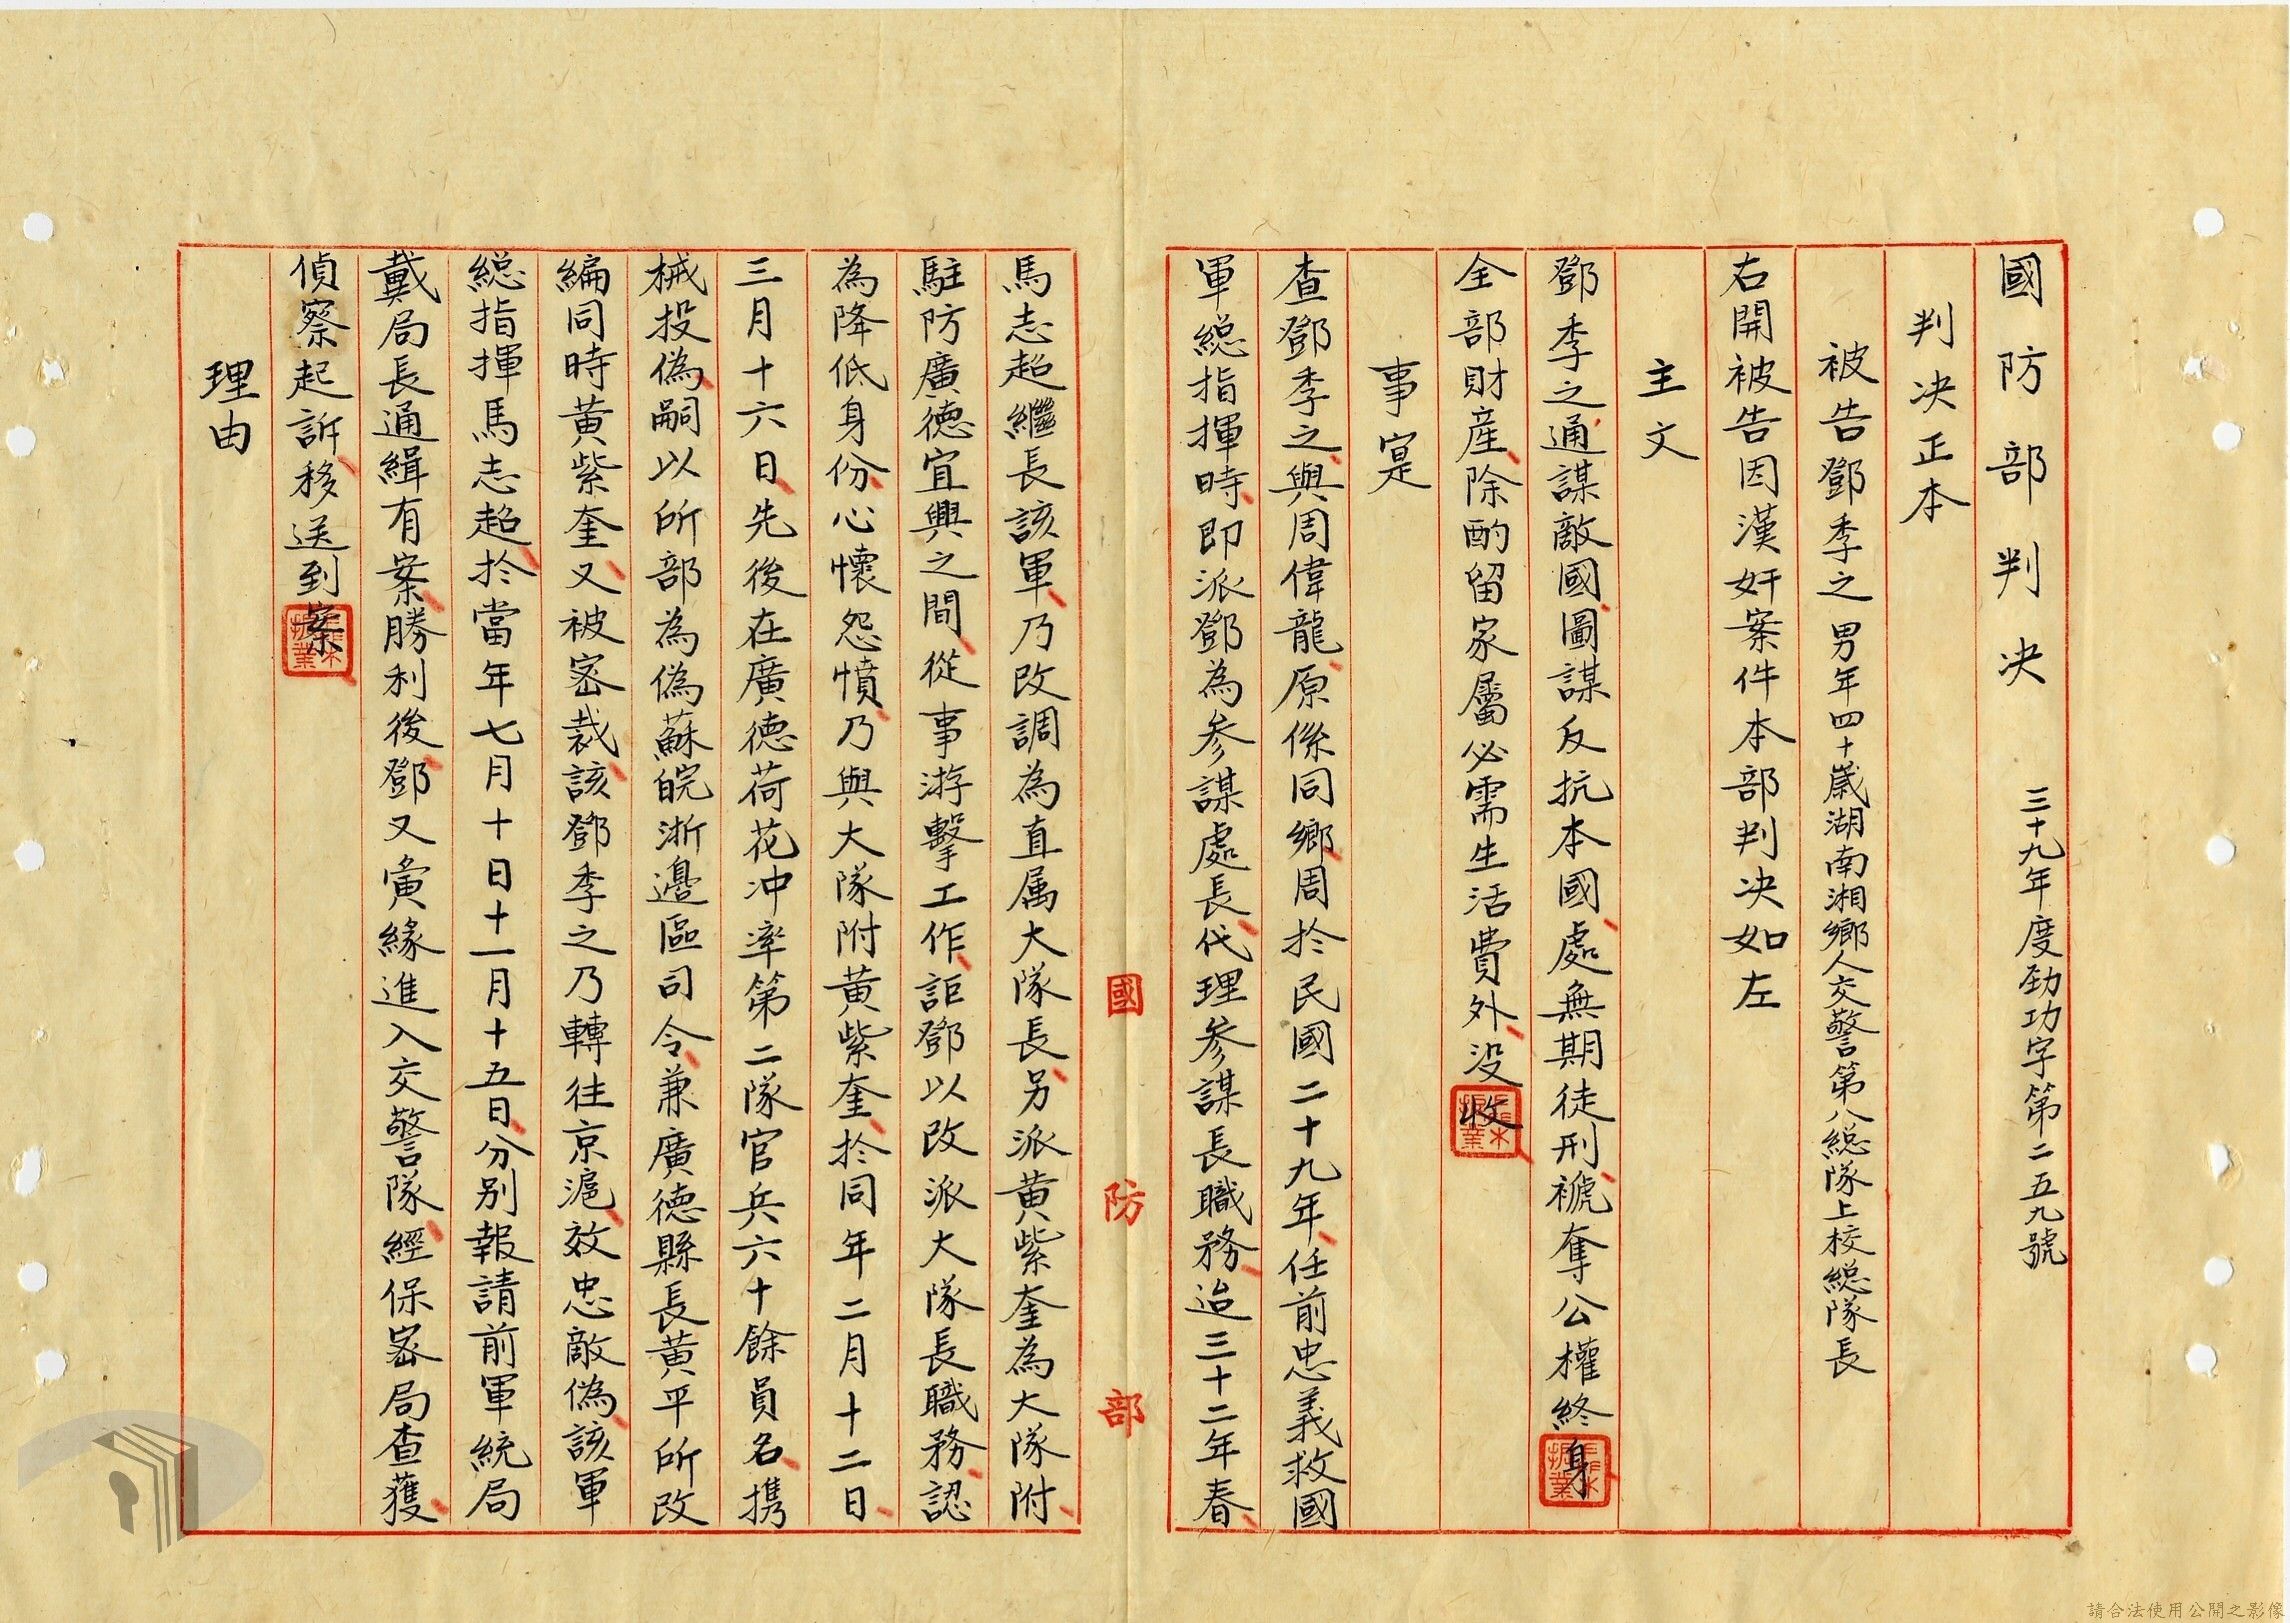 國防部判决　三十九年度勁功字第二五九號
判决正本
被告鄧季之男年四十歲湖南湘鄉人交警第八總隊上校總隊長
右開被告因漢奸案件本部判决如左
主文
鄧季之通謀敵國圖謀反抗本國處無期徒刑褫奪公權終身
全部財產除酌留家屬必需生活費外没收
事寔
查鄧季之與周偉龍原係同鄉周於民國二十九年任前忠義救國
軍總指揮時即派鄧為參謀處長代理參謀長職務迨三十二年春
國防部
馬志超繼長該軍乃改調為直属大隊長另派黄紫奎為大隊附
駐防廣德宜興之間從事游擊工作詎鄧以改派大隊長職務認
為降低身份心懷怨憤乃與大隊附黄紫奎於同年二月十二日
三月十六日先後在廣德荷花冲率第二隊官兵六十餘員名携
械投偽嗣以所部為偽蘇皖浙邊區司令兼廣德縣長黄平所改
編同時黄紫奎又被密裁該鄧季之乃轉往京滬效忠敵偽該軍
總指揮馬志超於當年七月十日十一月十五日分别報請前軍統局
戴局長通緝有案勝利後鄧又夤緣進入交警隊經保密局查獲
偵察起訴移送到案
理由
請合法使用公開之影像